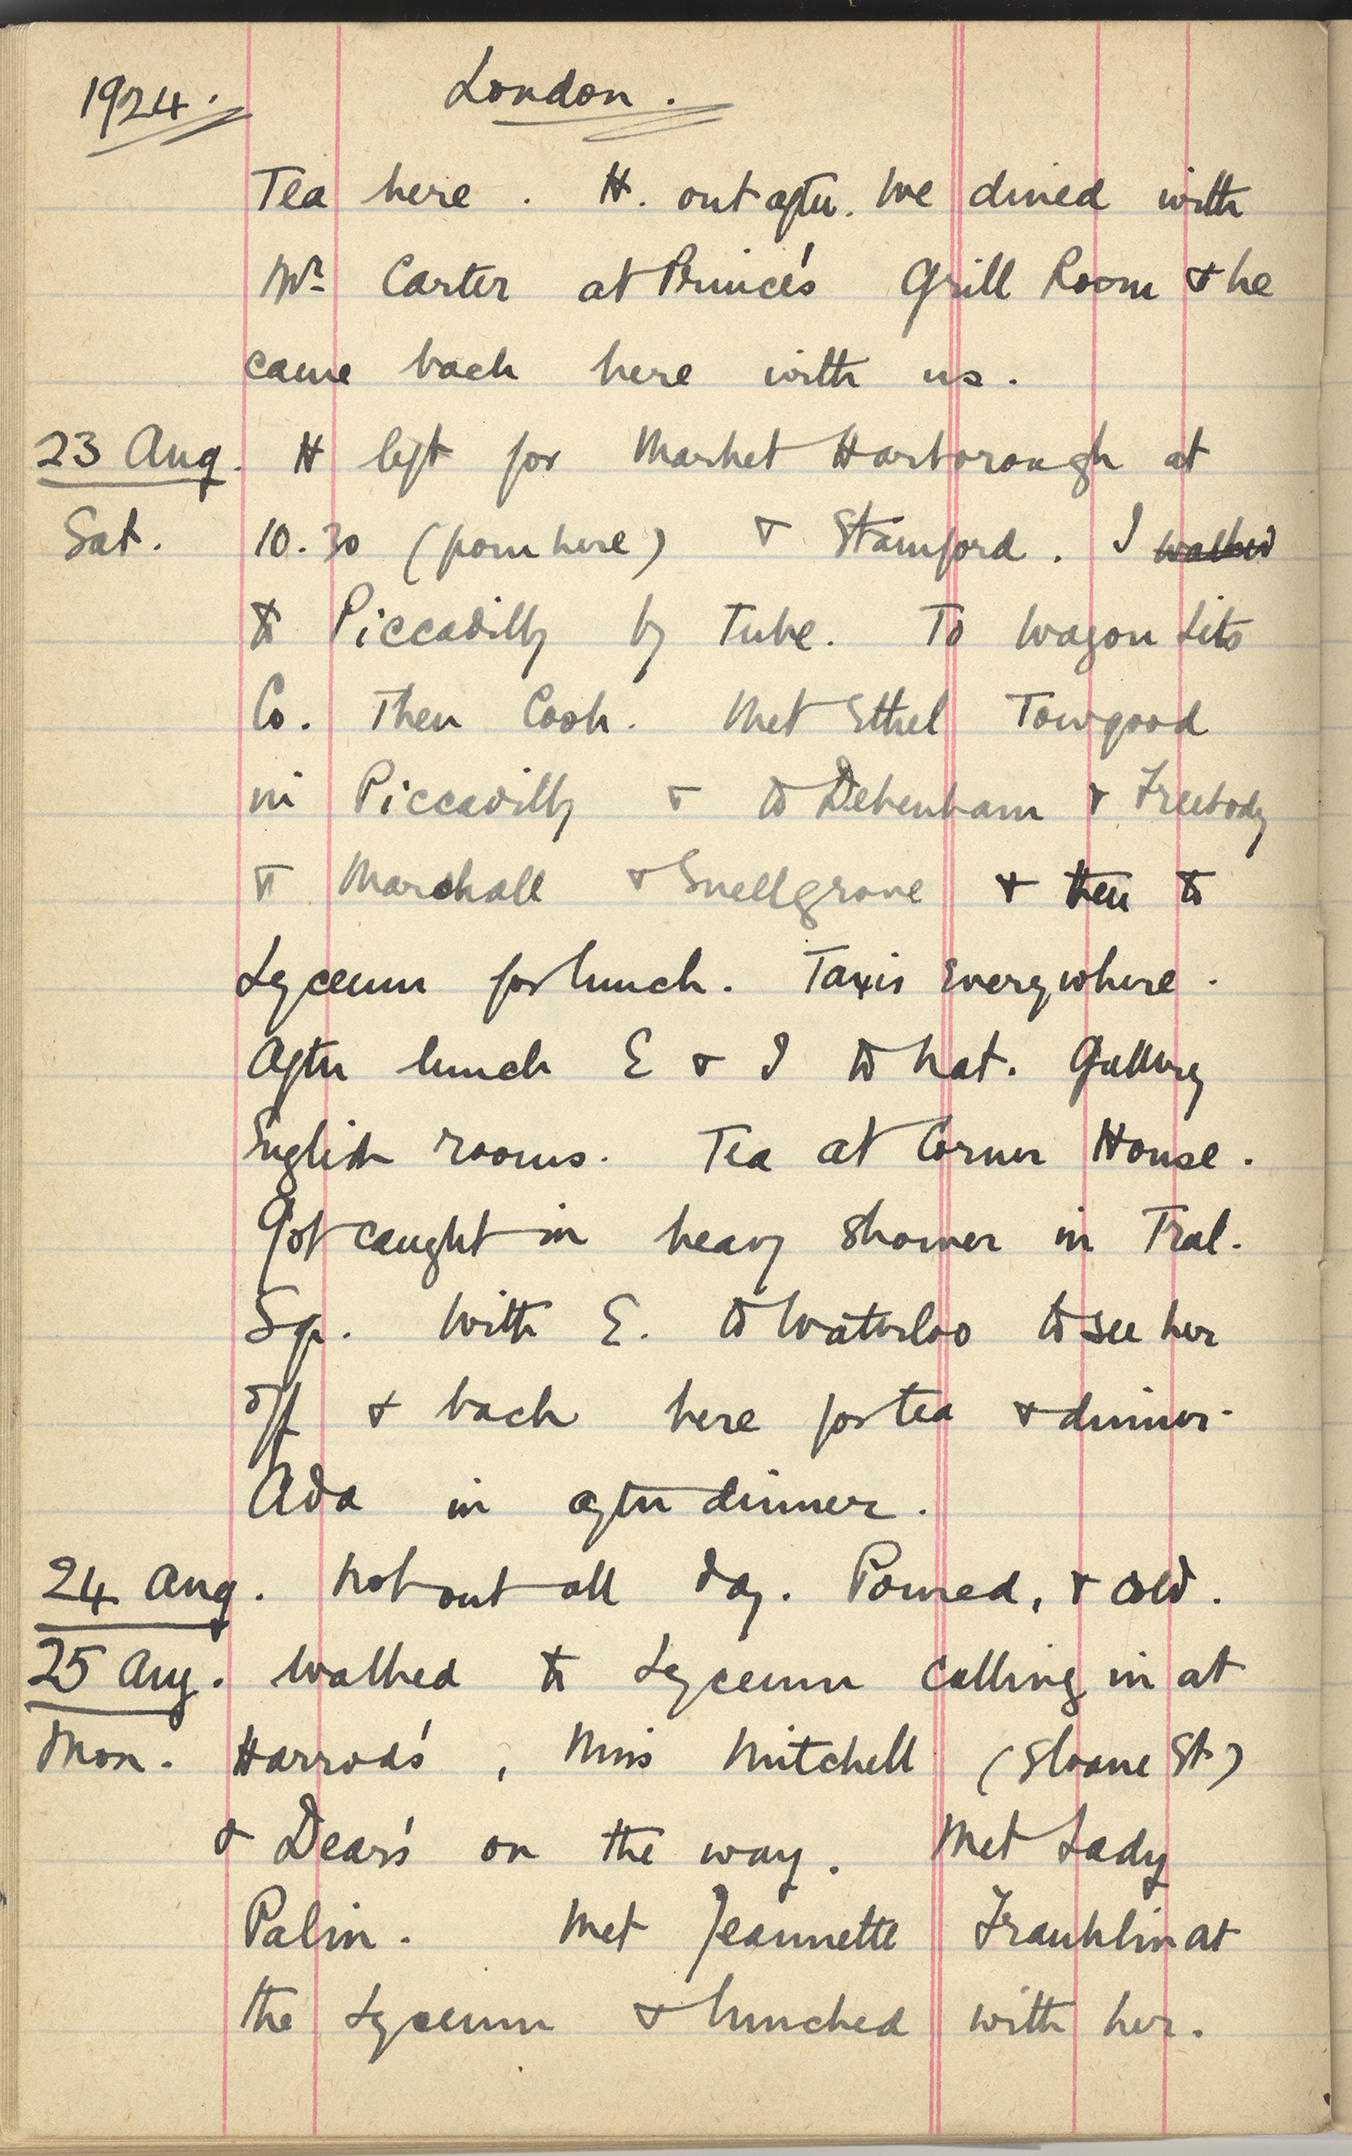 1924. London.
Tea here. H. out after. We dined with
Mr Carter at Prince's Grill Room & he
came back here with us.
23 Aug. H left for Market Harborough at
Sat. 10.30 (from here) & Stamford. I walked
to Piccadilly by Tube. To Wagon Lits
Co. Then Cook. Met Ethel Towgood
in Piccadilly & to Debenham & Freebody
to Marshall & Snellgrove & then to
Lyceum for lunch. Taxis everywhere.
After lunch E & I to Nat. Gallery
English rooms. Tea at Corner House.
Got caught in heavy shower in Tral.
Sq. With E. to Waterloo to see her
off & back here for tea & dinner.
Ada in after dinner.
24 Aug. Not out all day. Poured, & cold.
25 Aug. Walked to Lyceum calling in at
Mon. Harrod's, Miss Mitchell (Sloane St)
& Dear's on the way. Met Lady
Palin. Met Jeannette Franklin at
the Lyceum & lunched with her.